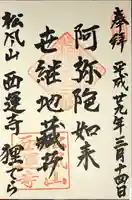 奉拝
平成廿九年三月十四日
阿弥陀如来
世継地蔵尊
松風山
西蓮寺
狸でら